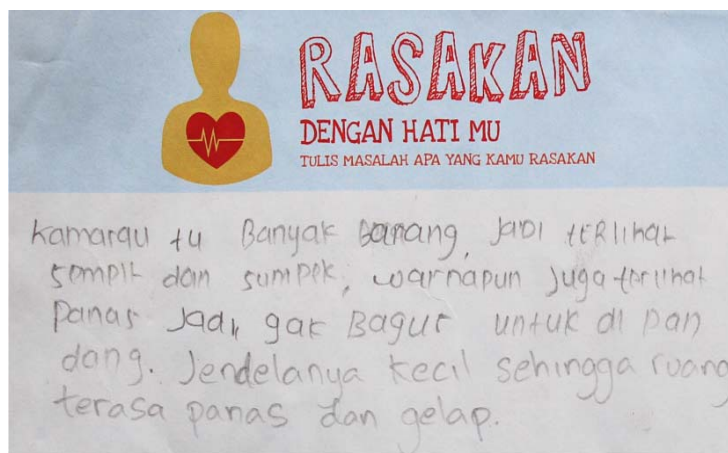 RASAKAN
DENGAN HATI MU
TULIS MASALAH APA YANG KAMU RASAKAN
kamarqu tu Banyak Barang, JADI teRlihat
sempit dan sumpek, warnapun juga terlihat
panas Jadi gak Bagus untuk di pan
dang. Jendelanya kecil sehingga ruang
terasa panas dan gelap.